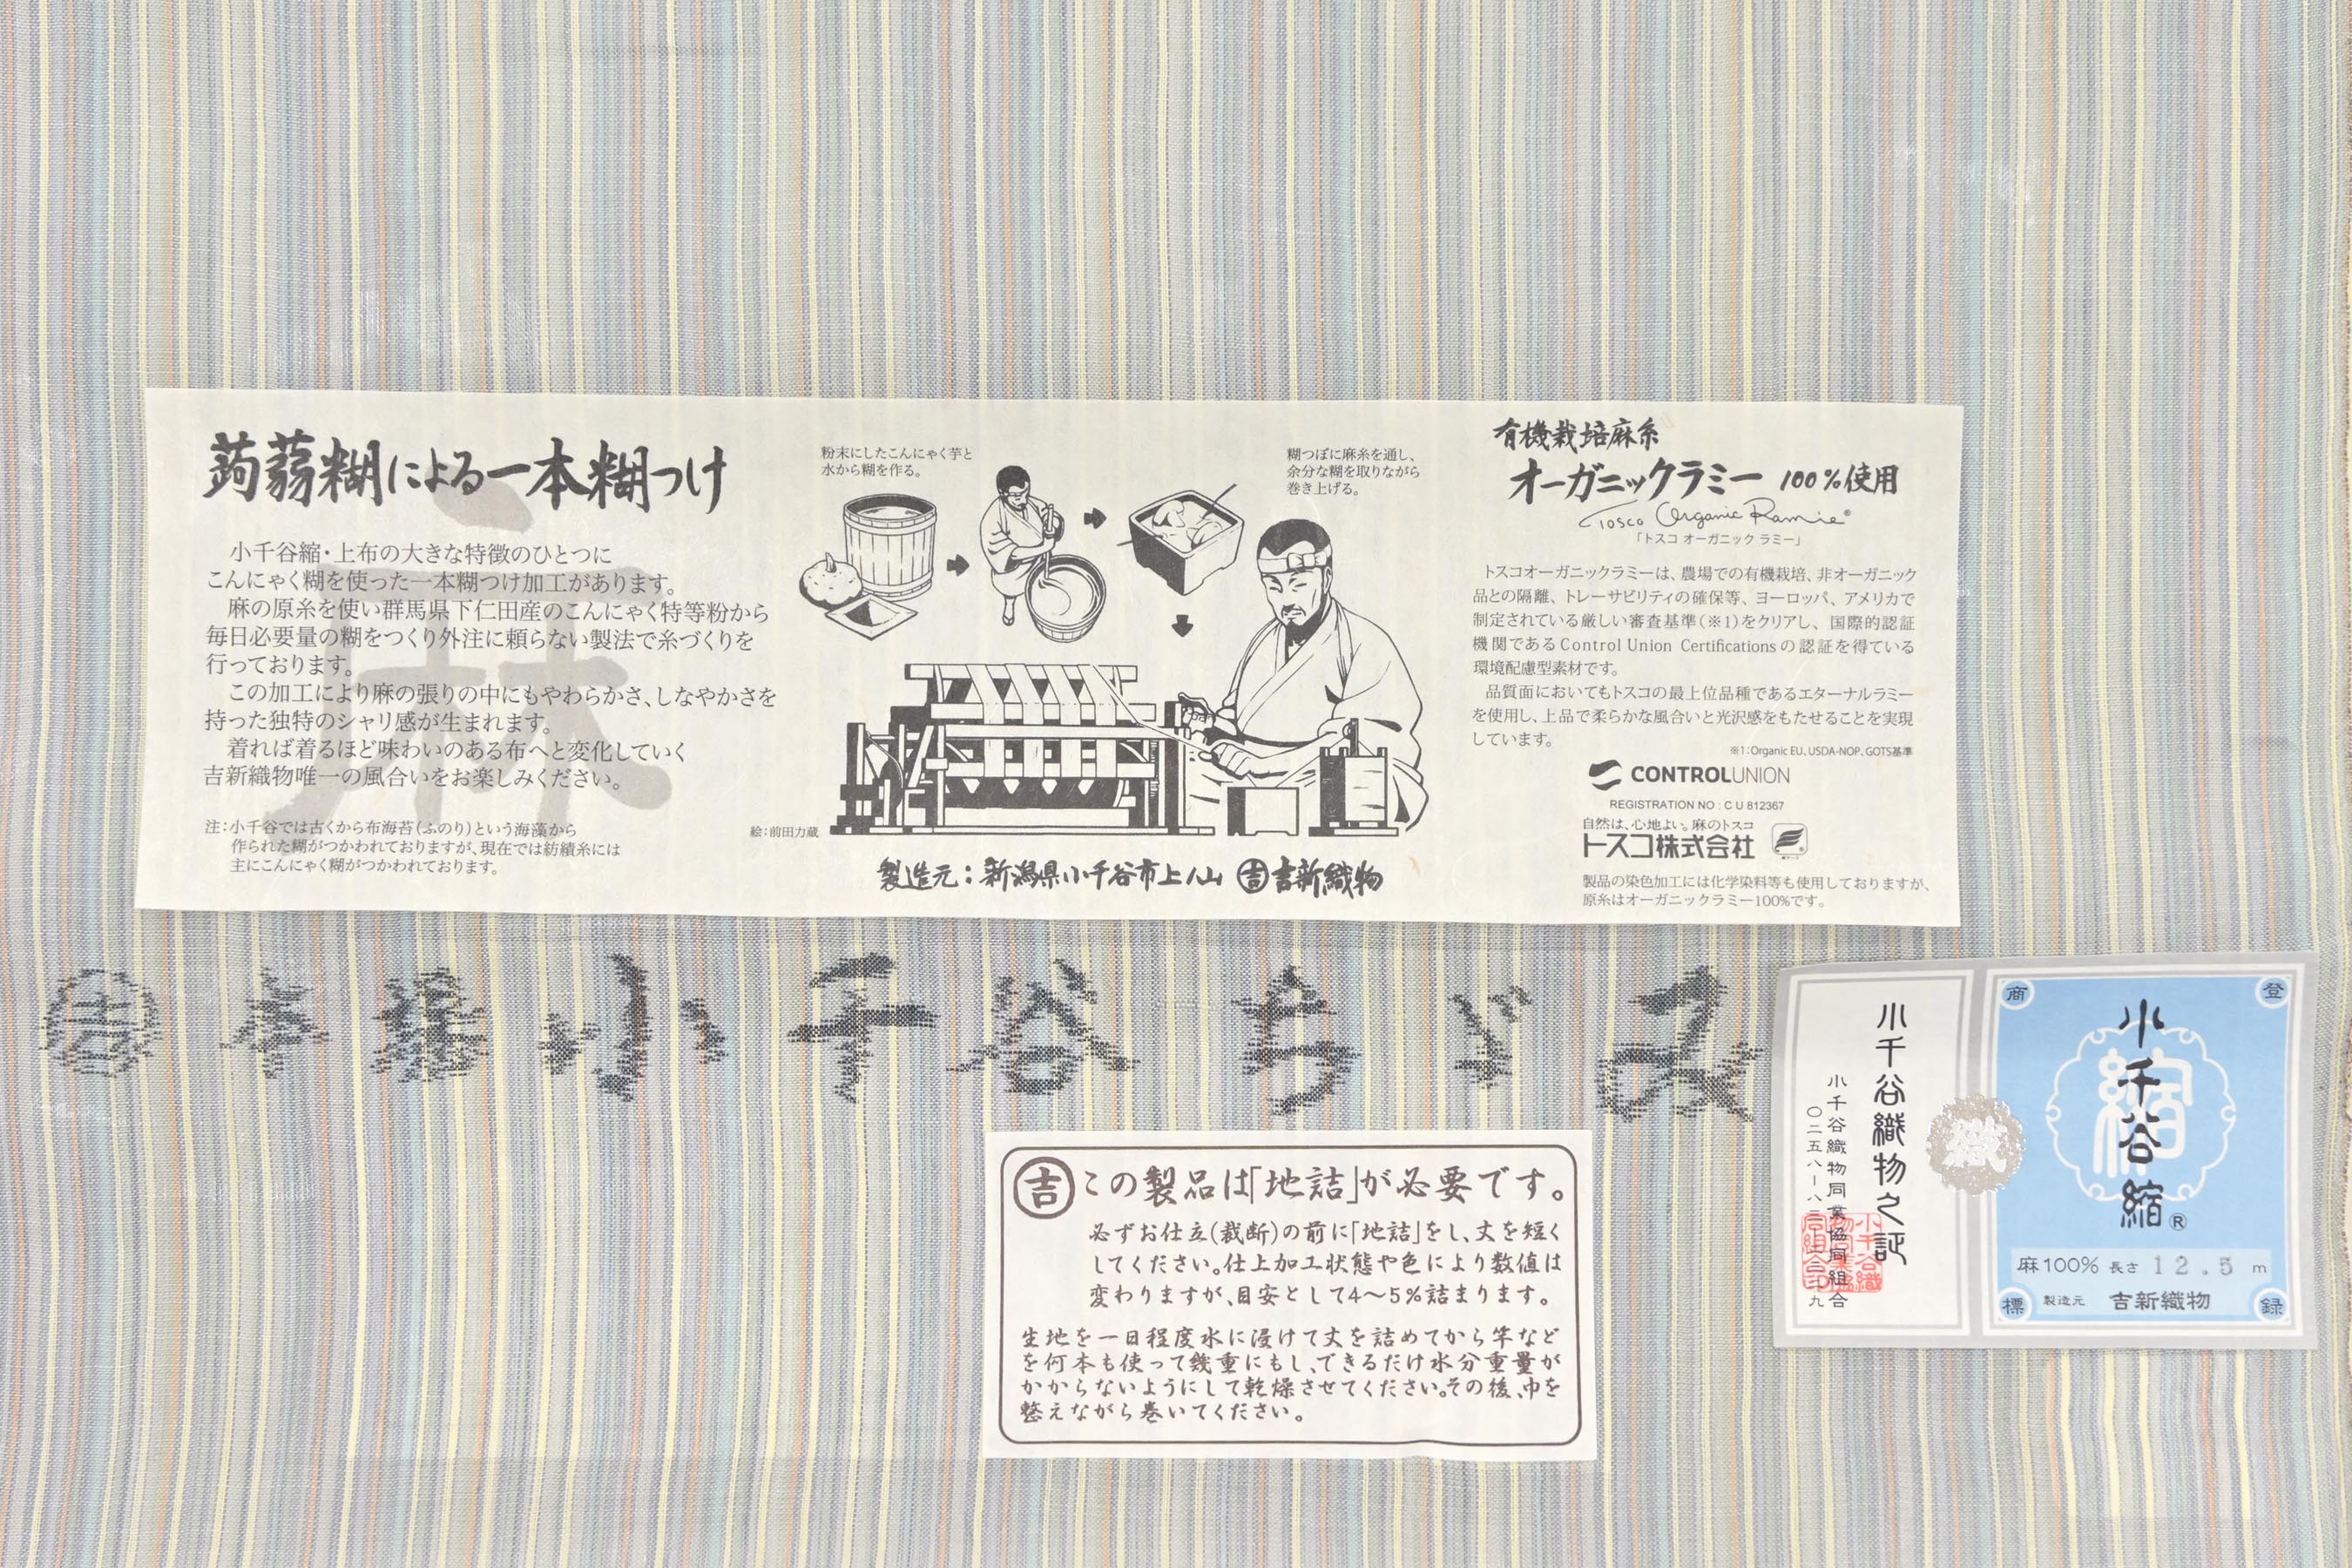 蒟蒻糊による一本糊つけ
小千谷縮・上布の大きな特徴のひとつに
こんにゃく糊を使った一本糊つけ加工があります。
麻の原糸を使い群馬県下仁田産のこんにゃく特等粉から
毎日必要量の糊をつくり外注に頼らない製法で糸づくりを
行っております。
この加工により麻の張りの中にもやわらかさ、しなやかさを
持った独特のシャリ感が生まれます。
着れば着るほど味わいのある布へと変化していく
吉新織物唯一の風合いをお楽しみください。
麻
注:小千谷では古くから布海苔(ふのり)という海藻から
作られた糊がつかわれておりますが、現在では紡績糸には
主にこんにゃく糊がつかわれております。
粉末にしたこんにゃく芋と
水から糊を作る。
糊つぼに麻糸を通し、
余分な糊を取りながら
巻き上げる。
絵:前田力蔵
製造元:新潟県小千谷市上ノ山 吉 吉新織物
有機栽培麻糸
オーガニックラミー 100%使用
Tosco Organic Ramie®
「トスコ オーガニック ラミー」
トスコオーガニックラミーは、農場での有機栽培、非オーガニック
品との隔離、トレーサビリティの確保等、ヨーロッパ、アメリカで
制定されている厳しい審査基準(※1)をクリアし、国際的認証
機関であるControl Union Certificationsの認証を得ている
環境配慮型素材です。
品質面においてもトスコの最上位品種であるエターナルラミー
を使用し、上品で柔らかな風合いと光沢感をもたせることを実現
しています。
※1:Organic EU、USDA-NOP、GOTS基準
CONTROLUNION
REGISTRATION NO : C U 812367
自然は、心地よい。麻のトスコ
トスコ株式会社
製品の染色加工には化学染料等も使用しておりますが、
原糸はオーガニックラミー100%です。
吉本場小千谷ちぢみ
吉この製品は「地詰」が必要です。
必ずお仕立(裁断)の前に「地詰」をし、丈を短く
してください。仕上加工状態や色により数値は
変わりますが、目安として4〜5%詰まります。
生地を一日程度水に浸けて丈を詰めてから竿など
を何本も使って幾重にもし、できるだけ水分重量が
かからないようにして乾燥させてください。その後、巾を
整えながら巻いてください。
小千谷織物之証
小千谷織物同業協同組合
〇二五八ー八三ー二三二九
織
商登標録
縮
小千谷縮®
麻100% 長さ 12.5 m
製造元 吉新織物